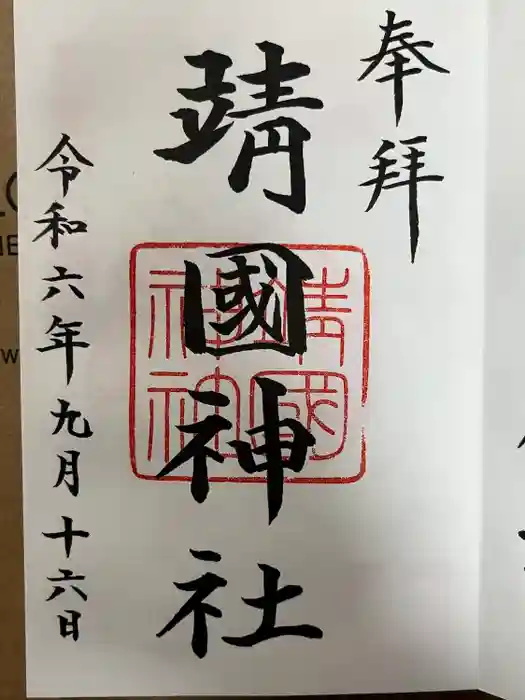 奉拝
靖國神社
靖國神社
令和六年九月十六日